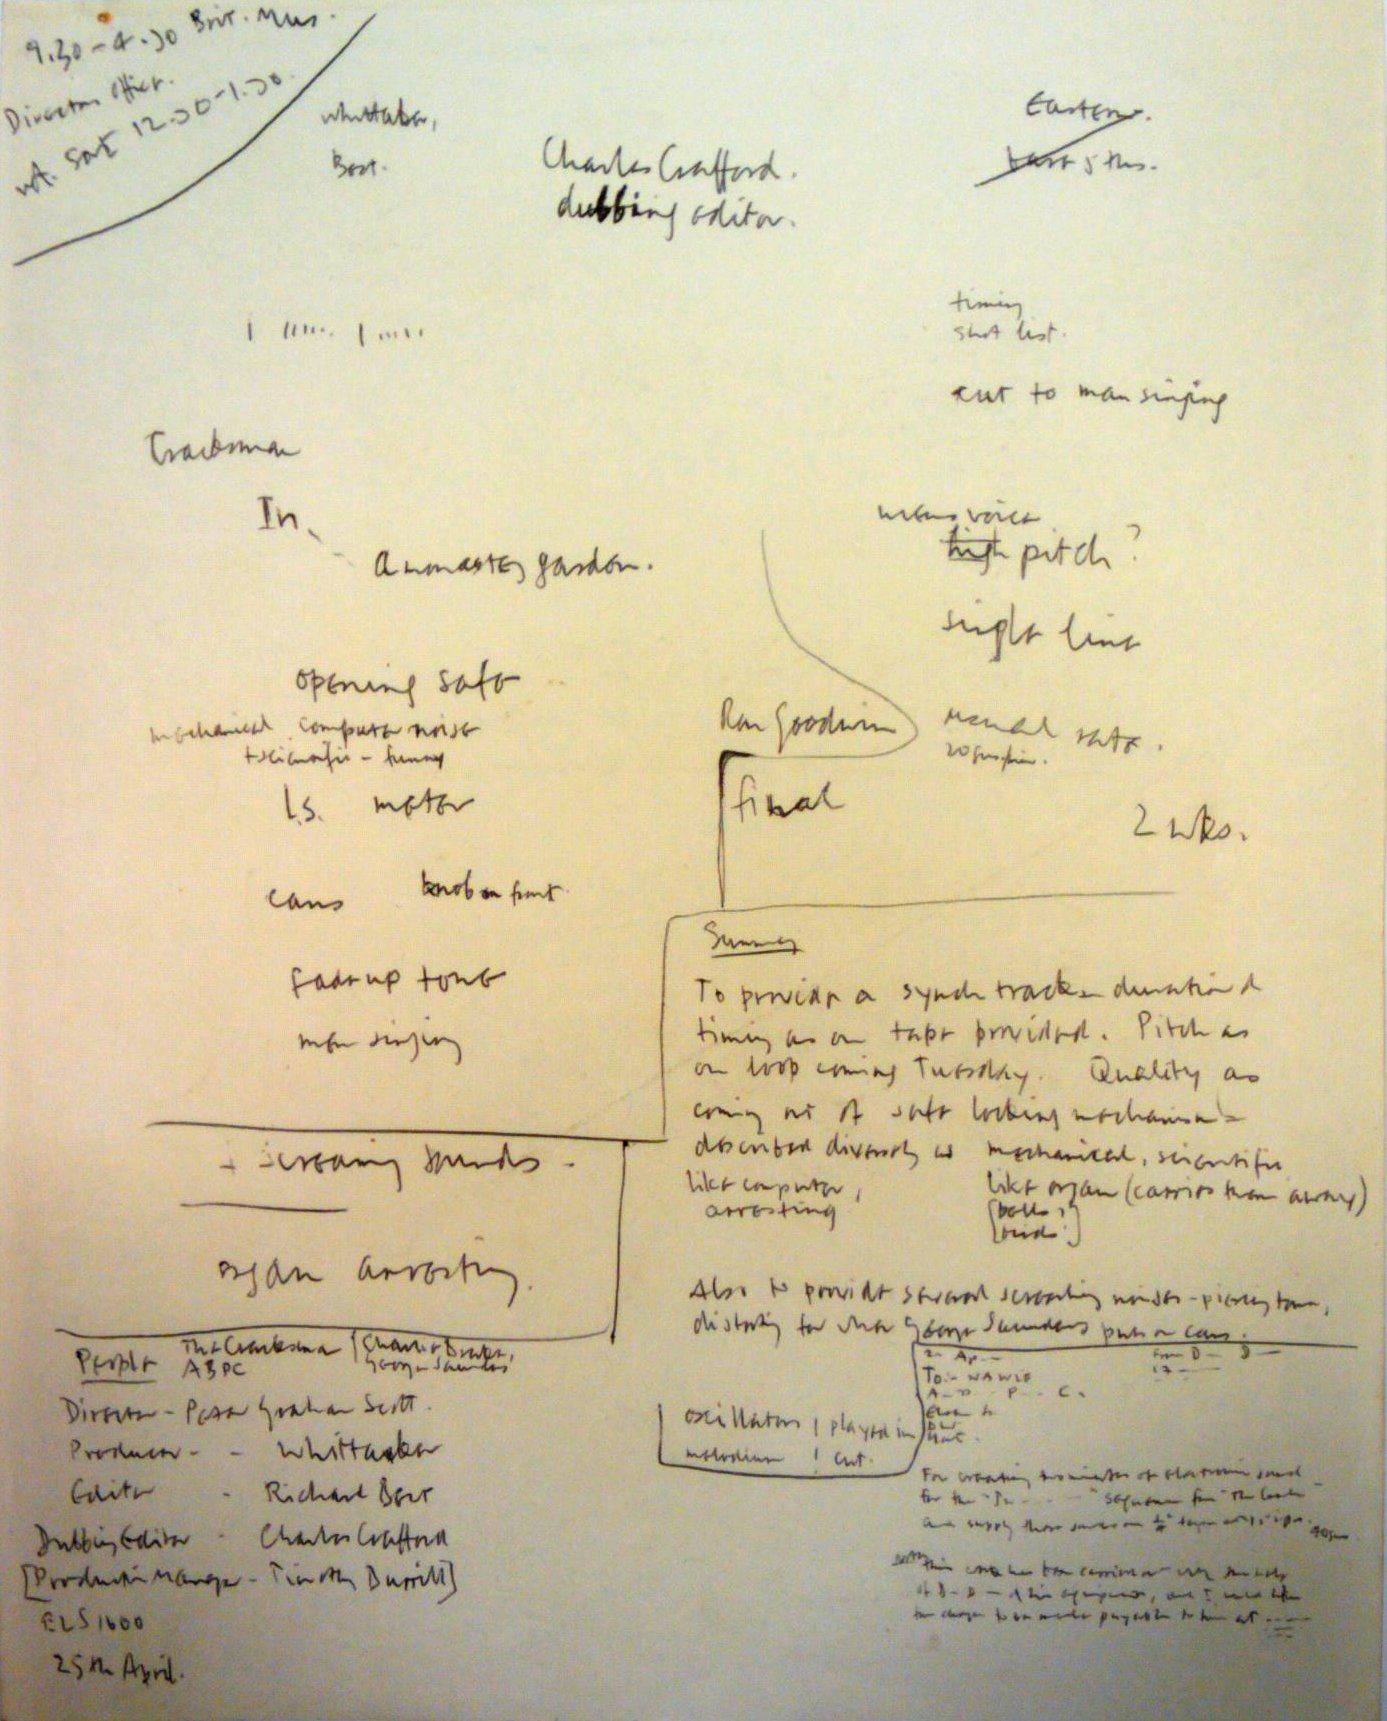 9.30 - 4.30 Brit. Mus.
Directors Office.
not. Sat 12.30 - 1.30
Whittaker,
Best.
Charles Crafford.
dubbing editor.
Eastern.
East 5 ths.
timing
shot list.
cut to man singing
Cracksman
In
a monastery garden.
mans voice
high pitch?
single line
opening safe
mechanical computer noise
+ scientific - funny
L.S. meter
Ron Goodwin
manual rate.
final
2 wks.
cans
knob on front
fade up tone
man singing
Summary
To provide a synch track - duration &
timing as on tape provided. Pitch as
on loop coming Tuesday. Quality as
coming out of safe locking mechanism -
described diversely as mechanical, scientific
like computer,
like organ (carries them away)
arresting
[bells,]
[birds]
+ screaming sounds -
organ arresting.
Also to provide several screaming noises - piercing tones,
distorting for when George Saunders puts on cans.
People
The Cracksman
ABPC
Charlie Drake,
George Saunders
Director - Peter Graham Scott.
Producer - - Whittaker
Editor - Richard Best
Dubbing Editor - Charles Crafford
[Production Manager - Timothy Burrill]
ELS 1600
25th April.
oscillators | played in
melodium | cut.
To - WAWLE
A - D - P - C.
For creating two minutes of electronic sound
for the "In - - - " sequence from "The Crack
and supply these sounds on 1/4" tape at 15 ips.
This work has been carried out with the help
of D - D - & his equipment, and I would like
the cheque to be made payable to him at